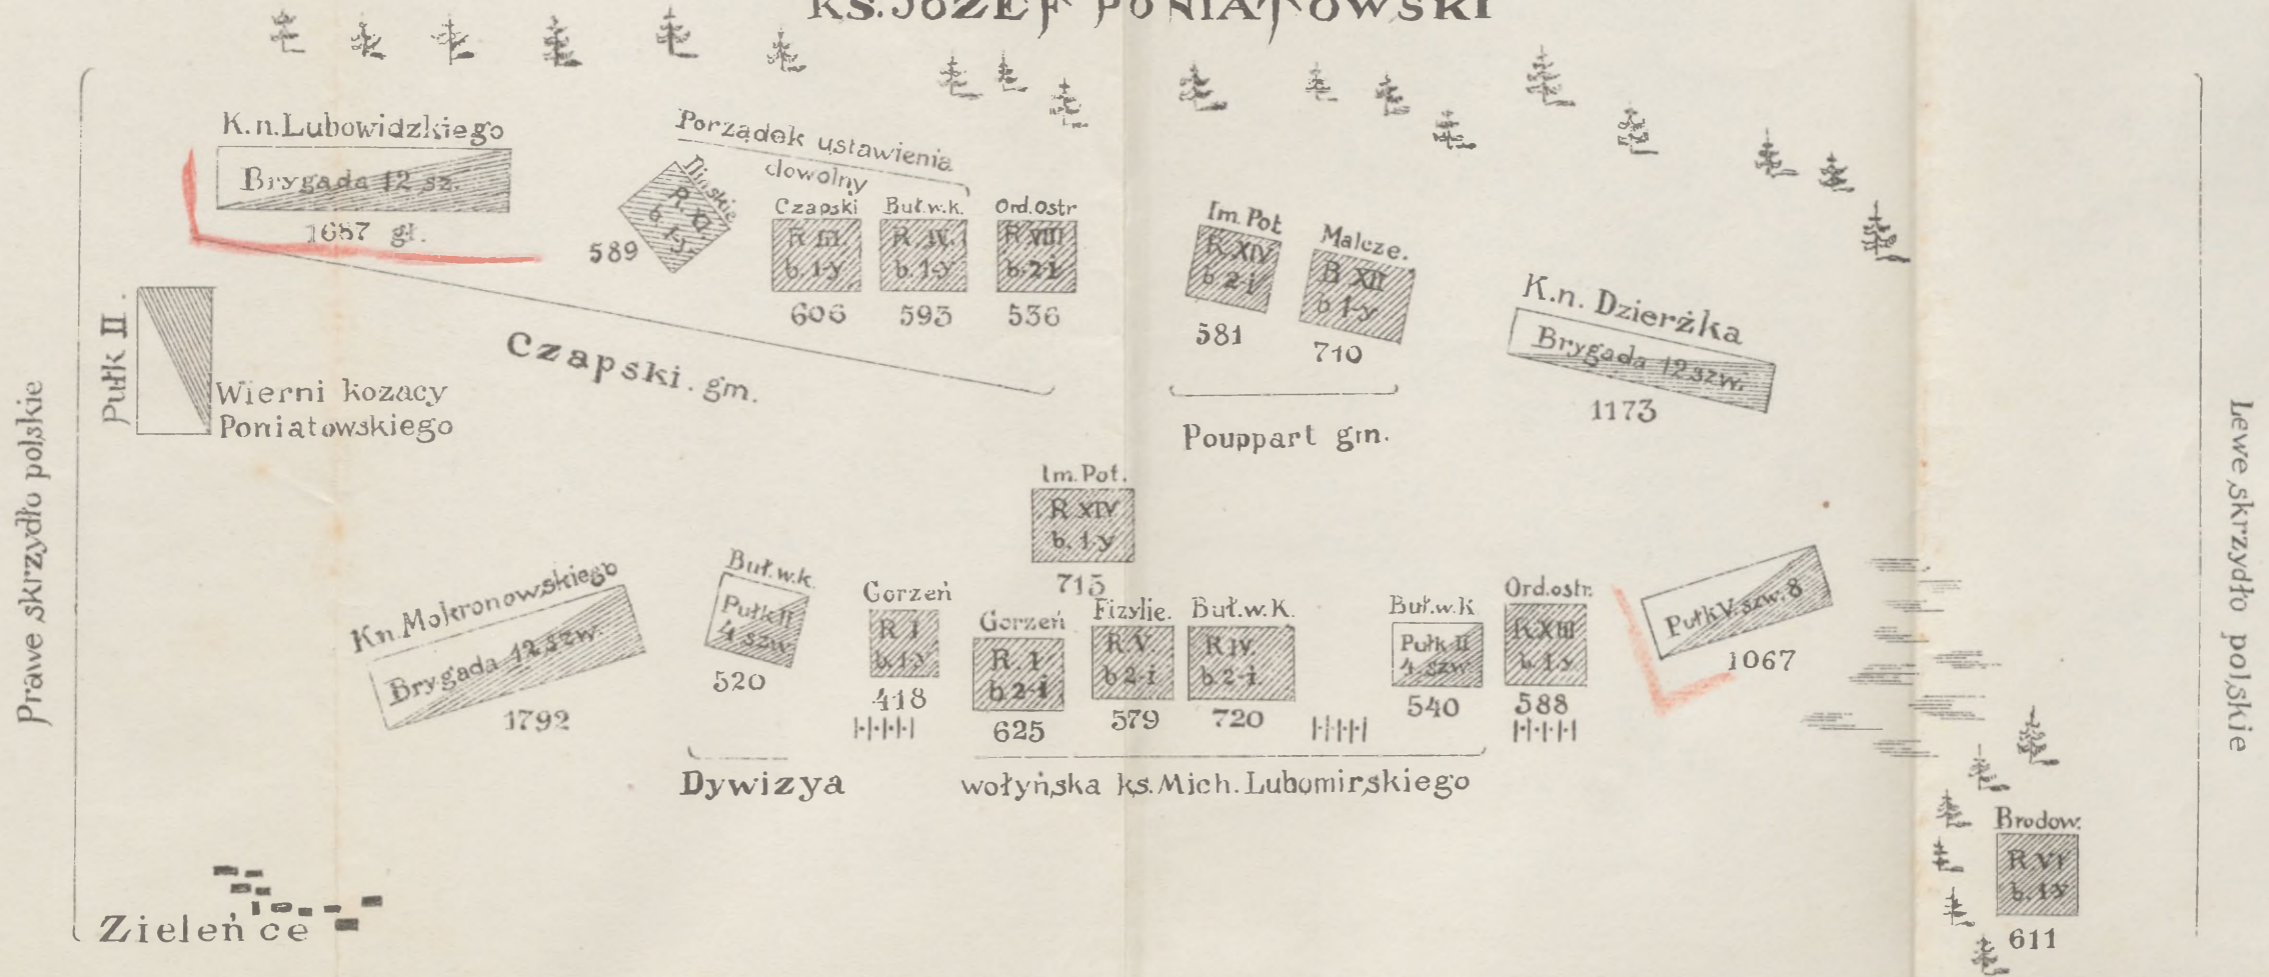 KS. JÓZEF PONIATOWSKI
K.n. Lubowidzkiego
Brygada 12 sz.
1687 gł.
Porządek ustawienia
dowolny
Ilińskie
R. XI.
b. 1-y.
589
Czapski
R III.
b. 1-y
606
Buł. w. k.
R. IV.
b. 1-y
593
Ord. Ostr
R VIII
b. 2-i
536
Czapski. gm.
Im. Pot
R XIV
b 2-i
581
Malcze.
R XII
b 1-y
710
Pouppart gm.
K.n. Dzierżka
Brygada 12 szw.
1173
Pułk II.
Wierni kozacy
Poniatowskiego
Prawe skrzydło polskie
Lewe skrzydło polskie
Im. Pot.
R XIV
b. 1-y
715
Kn. Mokronowskiego
Brygada 12 szw.
1792
Buł. w. k.
Pułk II
4 szw
520
Gorzeń
R I
b. 1-y
418
Gorzeń
R. I
b 2-i
625
Fizylje.
R. V.
b 2-i
579
Buł. w. K.
R IV.
b 2-i.
720
Buł. w. K
Pułk II
4 szw
540
Ord. ostr.
R XIII
b. 1-y
588
Pułk V. szw. 8
1067
Dywizya wołyńska ks. Mich. Lubomirskiego
Brodow.
R. VI
b. 1-y
611
Zieleńce